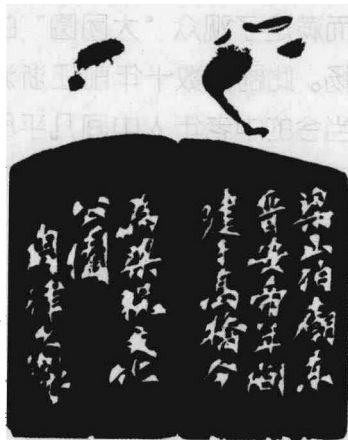 梁山伯廟东
晋安帝年间
建于高橋今
为梁祝文化
公園
周律之题